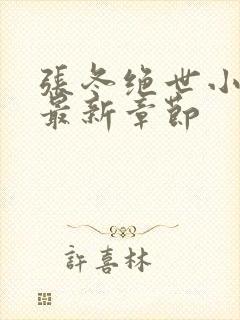 張冬绝世小
最新章節
許喜林